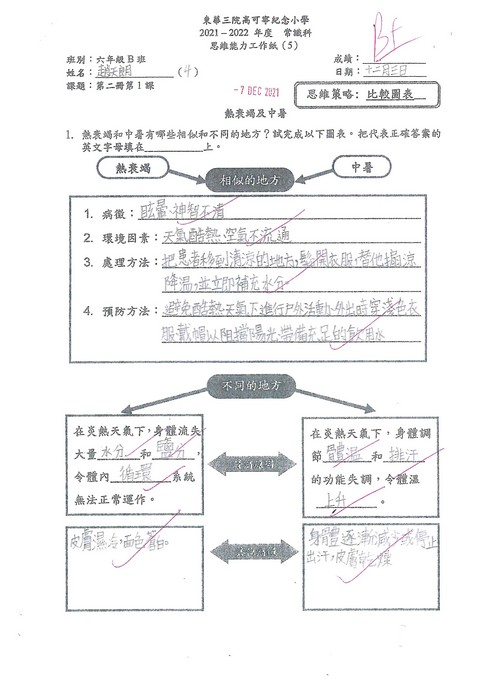 東華三院高可寧紀念小學
2021–2022 年度 常識科
思維能力工作紙(5)
B+
班別：六年級 B 班
成績：
姓名：趙天朗 (4)
日期：十二月三日
課題：第二冊第 1 課
-7 DEC 2021
思維策略：比較圖表
熱衰竭及中暑
1. 熱衰竭和中暑有哪些相似和不同的地方？試完成以下圖表。把代表正確答案的
英文字母填在 上。
熱衰竭
中暑
相似的地方
1. 病徵：眩暈、神智不清
2. 環境因素：天氣酷熱、空氣不流通
3. 處理方法：把患者移到清涼的地方，鬆開衣服，替他搧涼
降溫，並立即補充水分。
4. 預防方法：避免酷熱天氣下進行戶外活動，外出時穿淺色衣
服、戴帽以阻擋陽光、帶備充足的飲用水
不同的地方
在炎熱天氣下，身體流失
大量水分 和鹽分，
令體內 循環 系統
無法正常運作。
在炎熱天氣下，身體調
節 體溫 和 排汗
的功能失調，令體溫
上升。
皮膚濕冷，面色蒼白。
身體逐漸減少或停止
出汗，皮膚乾燥